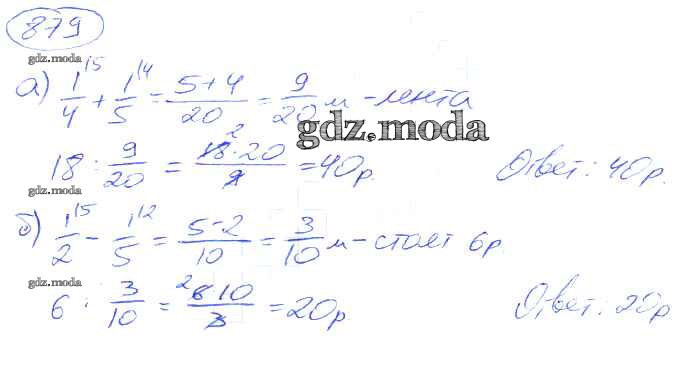 879
gdz.moda
а) 1/4 ⁽⁵ + 1/5 ⁽⁴ = 5+4/20 = 9/20 м - лента
gdz.moda
18 : 9/20 = 18·20/9 ² = 40р. Ответ: 40р.
gdz.moda
б) 1/2 ⁽⁵ - 1/5 ⁽² = 5-2/10 = 3/10 м - стоит 6р
gdz.moda
6 : 3/10 = ²6·10/3 = 20р Ответ: 20р.